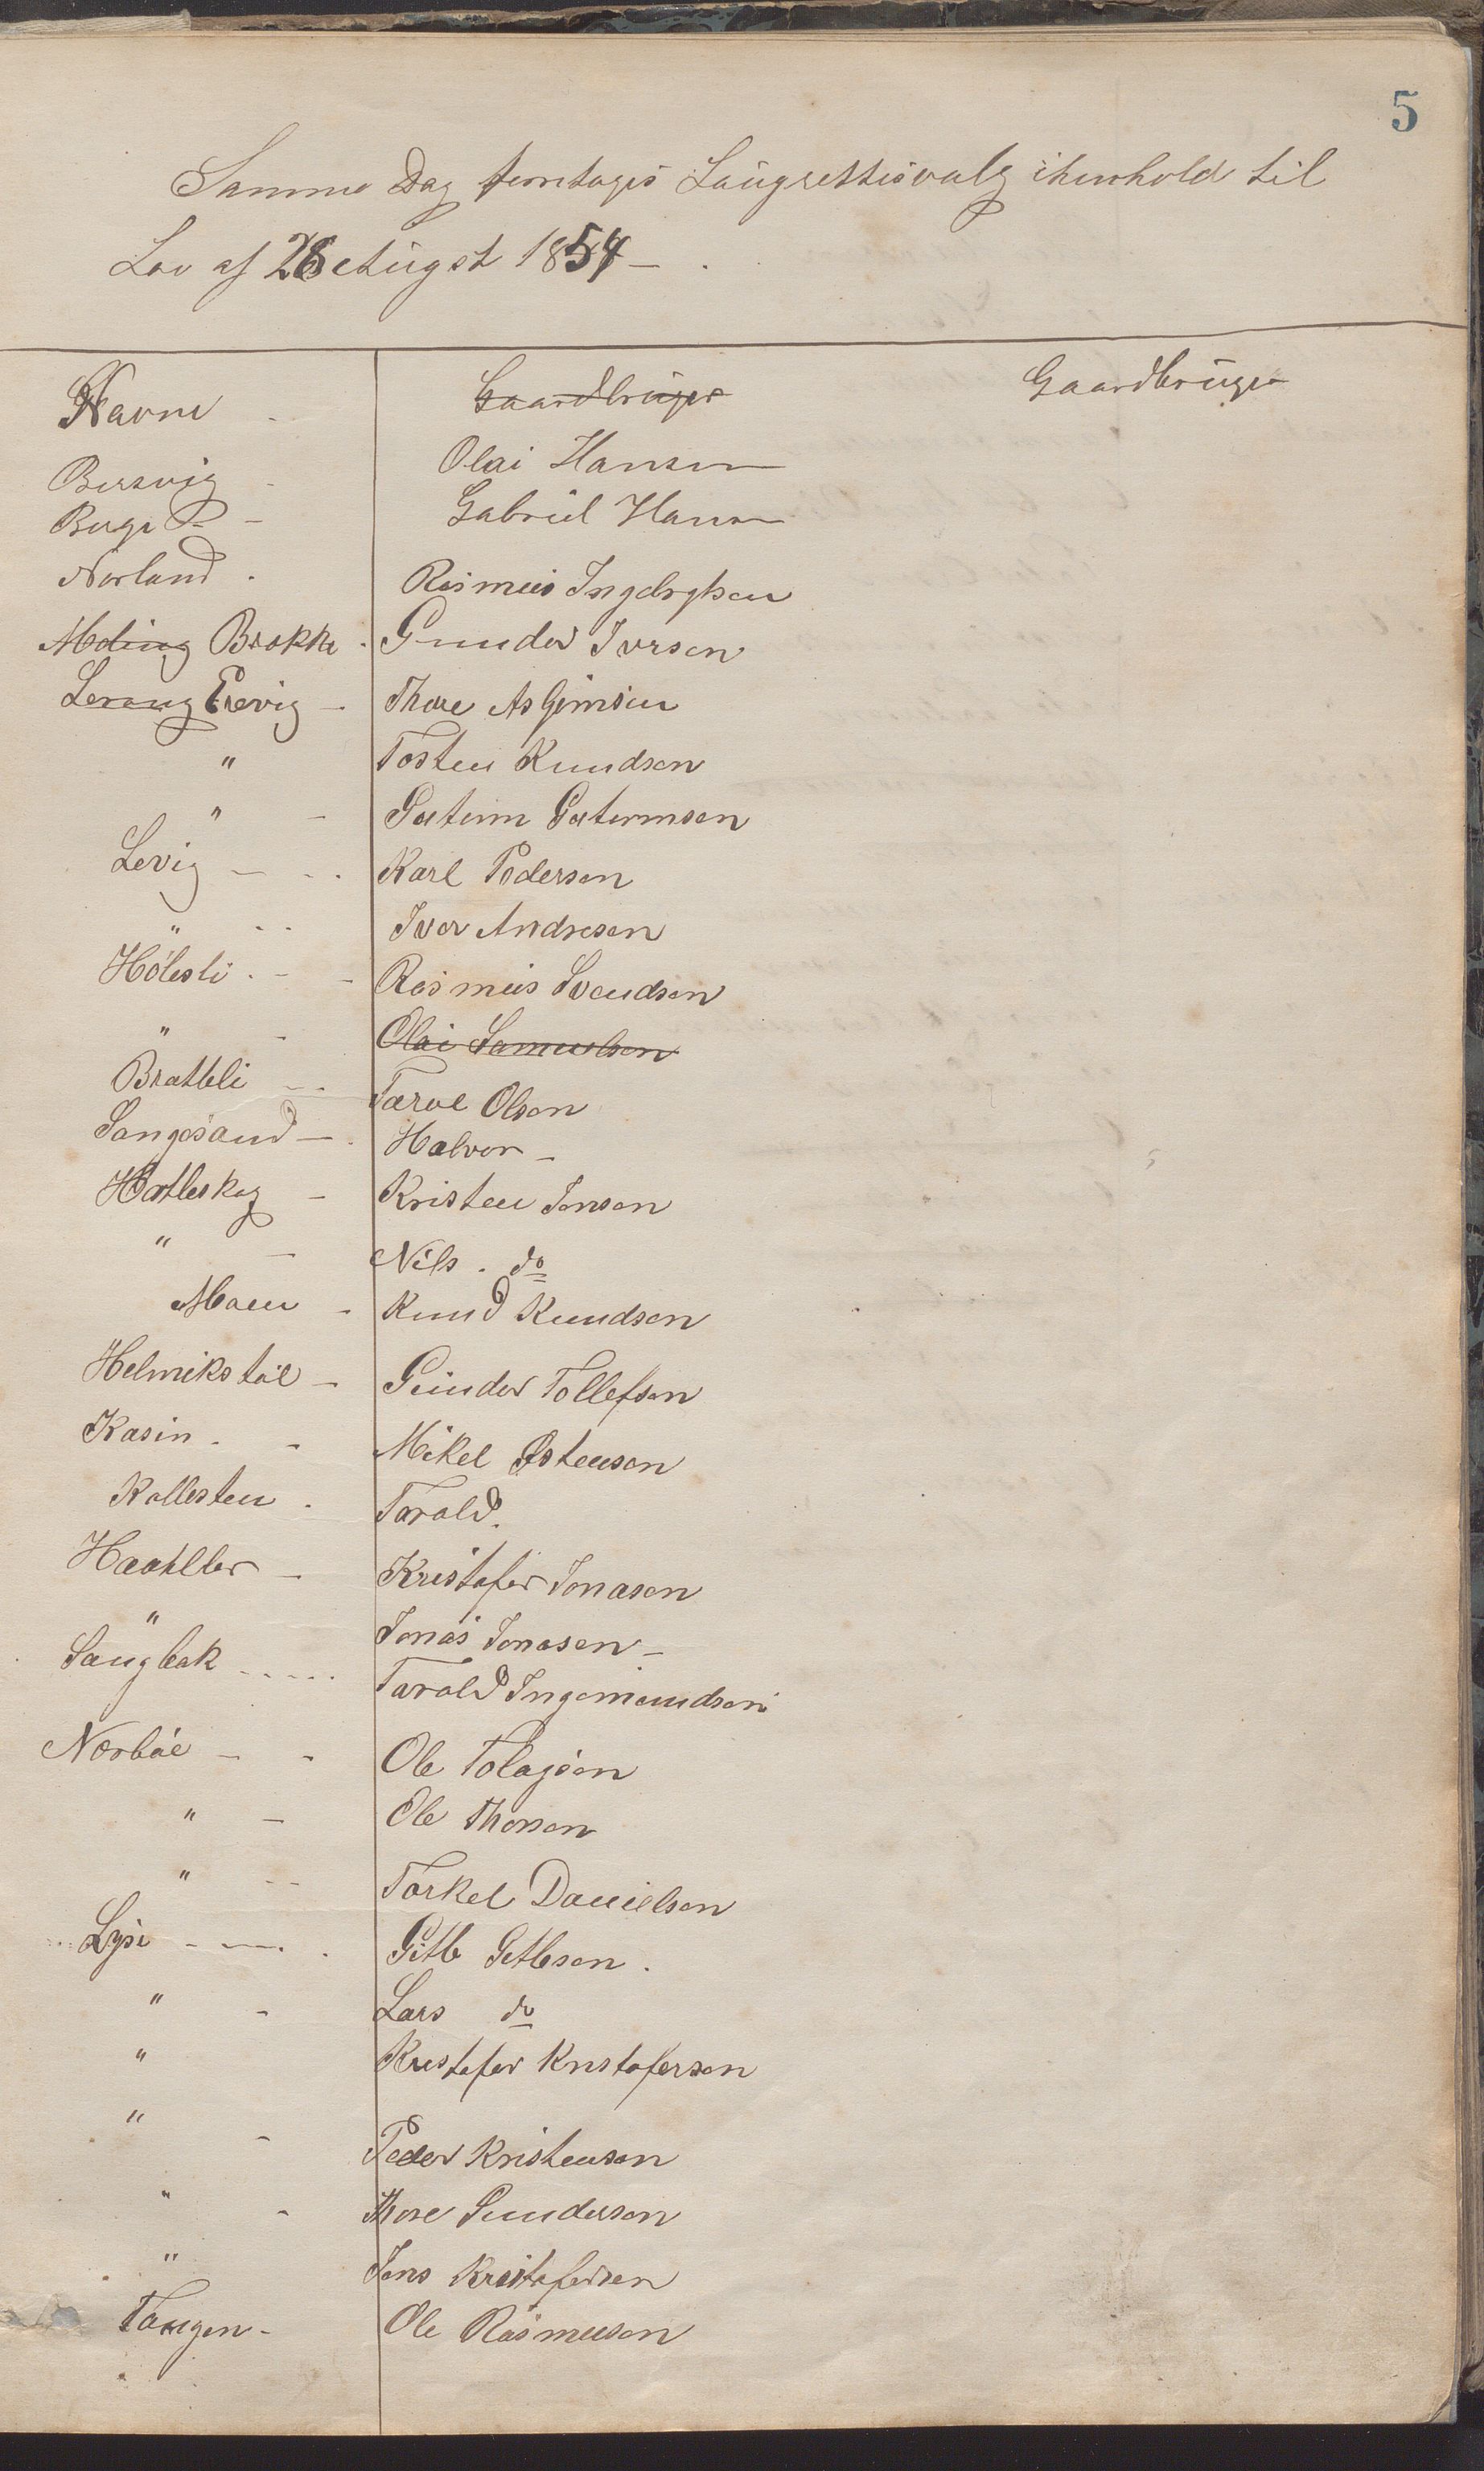 5
Samme Dag foretoges Laugrettisvalg ihenhold til
Lov af 28 August 1854 -
Navne - Gaardbruger Gaardbruger
Bersvig - Olai Hansen
Berge - Gabriel Hansen
Norland . Rasmus Ingebrgtsen
Moding Brokke - Gunder Iversen
Lerang Eievig - Thore Asgimsen
" Tosten Knudsen
" - Guttorm Guttormsen
Levig - - . Karl Pedersen
" - - Iver Andresen
Hølesli . - - Rasmus Svendsen
" - Olai Samuelsen
Bratteli - - Tarve Olsen
Sangesand - . Halvor -
Hatleskog - Kristen Jensen
" - Nils . do
Moen - Knud Knudsen
Helmikstøl - Gunder Tollefsen
Kasin - - Mikel Østensen
Kallesten . Tarald.
Haahller - Kristofer Jonasen
" Jonas Jonasen -
Saugbak - - - - - Tarald Ingemundsen
Nørbøe - - Ole Tolagsen
" - Ole Thorsen
" - - Torkel Danielsen
Lyse - - . . Gitle Gitlesen .
" - Lars do
" Kristofer Kristofersen
" - Peder Kristensen
" - Thore Gundersen
" Jens Kristofersen
Tangen - Ole Rasmusen